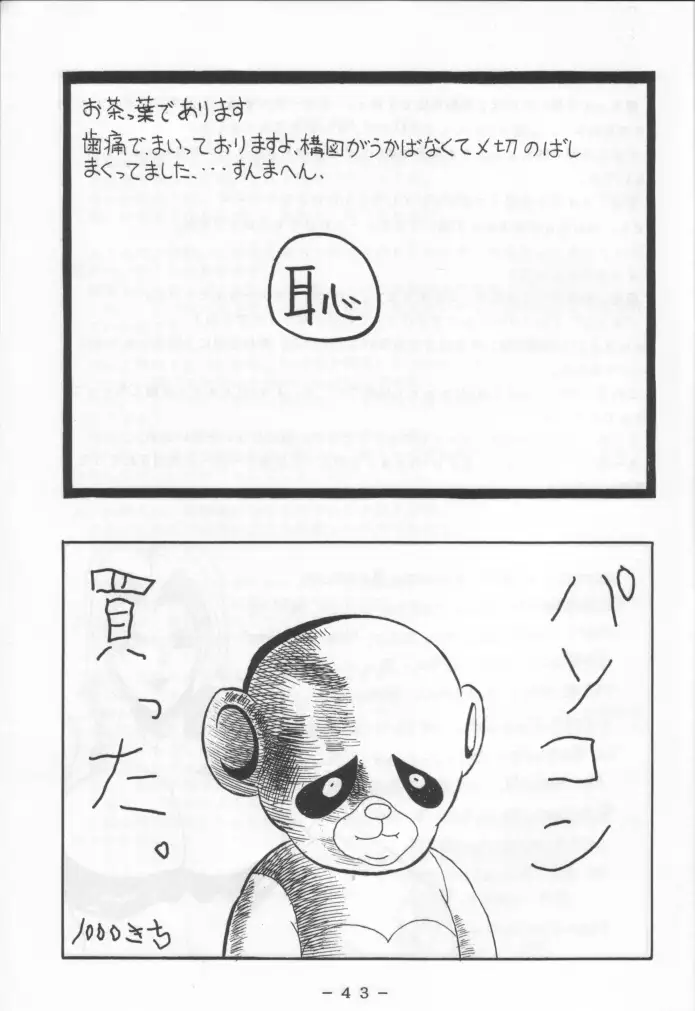 お茶っ葉であります
歯痛で、まいっておりますよ、構図がうかばなくて〆切のばし
まくってました、・・・すんまへん、
恥
パソコン
買った。
1000きち
- 43 -